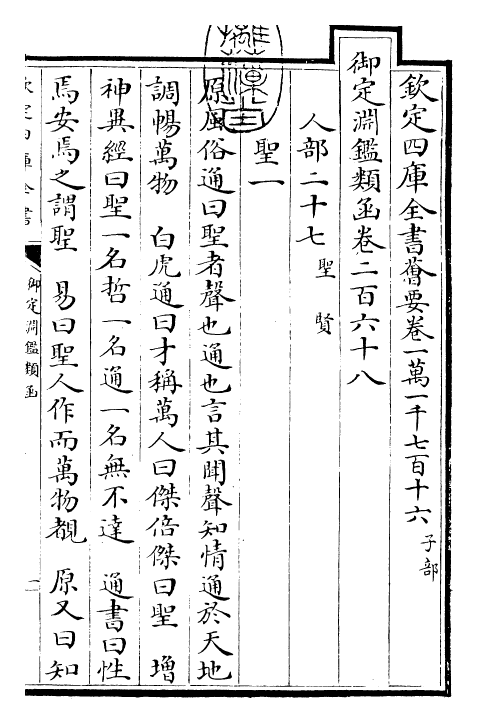 欽定四庫全書薈要卷一萬一千七百十六 子部
御定淵鑑類函卷二百六十八
人部二十七 聖 賢
聖一
原風俗通曰聖者聲也通也言其聞聲知情通於天地
調暢萬物 白虎通曰才稱萬人曰傑倍傑曰聖 增
神異經曰聖一名哲一名通一名無不達 通書曰性
焉安焉之謂聖 易曰聖人作而萬物覩 原又曰知
御定淵鑑類函